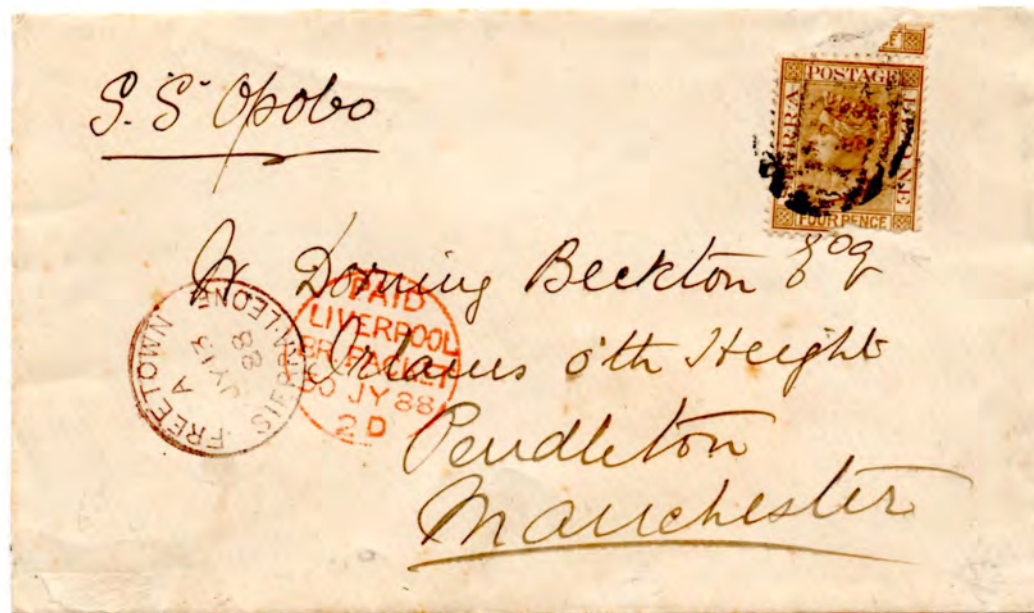 S.S. Opobo
POSTAGE
SIERRA LEONE
FOUR PENCE
W Dorning Beckton Esq
o'th Height
Pendleton
Manchester
FREETOWN
SIERRA-LEONE
A
JY 13
88
PAID
LIVERPOOL
BR. PACKET
30 JY 88
2 D